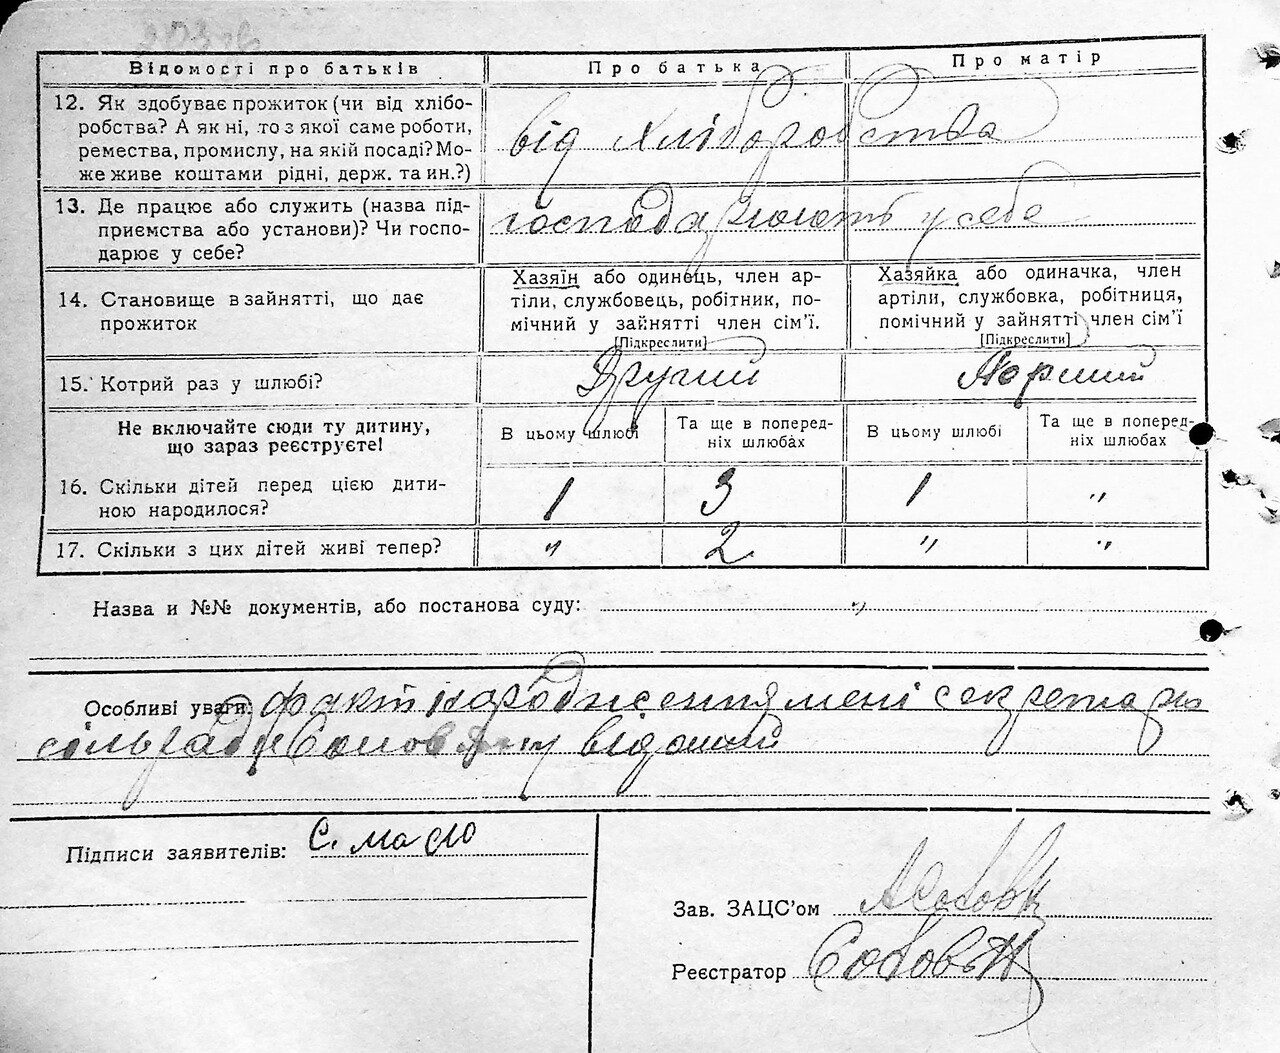 Відомості про батьків Про батька Про матір
12. Як здобуває прожиток (чи від хлібо-
робства? А як ні, то з якої саме роботи,
ремества, промислу, на якій посаді? Мо-
же живе коштами рідні, держ. та ин.?)
від хліборобства
13. Де працює або служить (назва під-
приємства або установи)? Чи госпо-
дарює у себе?
господарюють у себе
14. Становище в зайнятті, що дає
прожиток
Хазяїн або одинець, член ар-
тіли, службовець, робітник, по-
мічний у зайнятті член сім’ї.
[Підкреслити]
Хазяйка або одиначка, член
артіли, службовка, робітниця,
помічний у зайнятті член сім’ї
[Підкреслити]
15. Котрий раз у шлюбі?
Другий
Перший
Не включайте сюди ту дитину,
що зараз реєструєте!
В цьому шлюбі
Та ще в поперед-
ніх шлюбах
В цьому шлюбі
Та ще в поперед-
ніх шлюбах
16. Скільки дітей перед цією дити-
ною народилося?
1 3 1 "
17. Скільки з цих дітей живі тепер?
" 2 " "
Назва и №№ документів, або постанова суду: "
Особливі уваги: факт народження мені секретарю
сільради відомий
Підписи заявителів: С. Масло
Зав. ЗАЦС’ом
Реєстратор